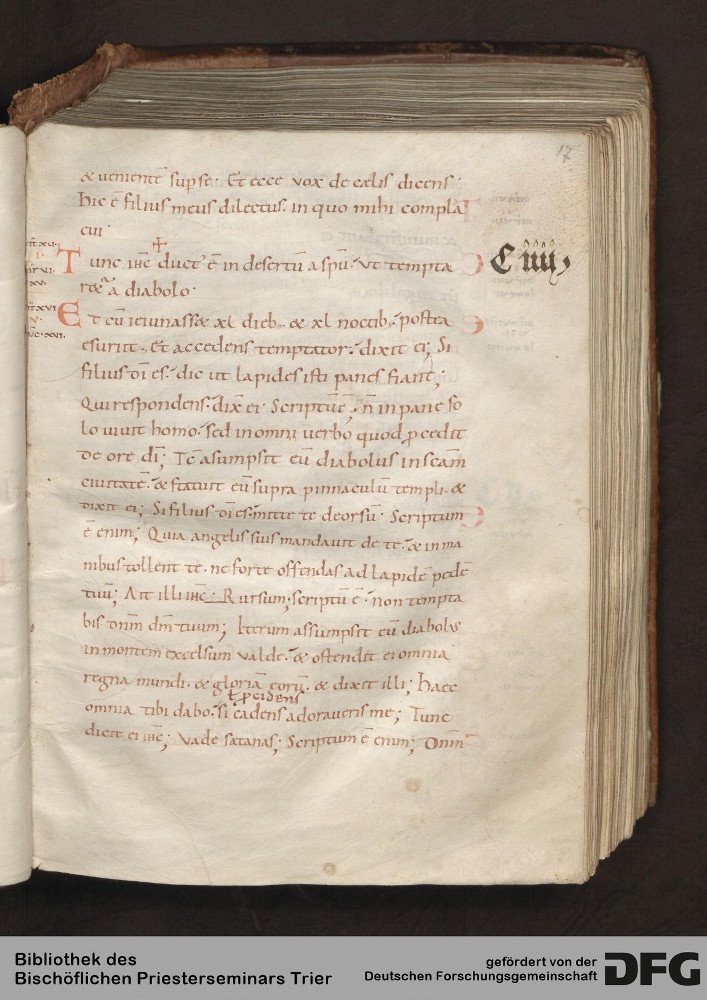 17
& uenientē sup se · Et ecce vox de cælis dicens ·
hic ē filius meus dilectus · in quo mihi compla
cui ·
Tunc ihc̄ duct' ē in desertū a spū · vt tempta
ret a diabolo ·
C iiii
Et cū ieiunass& xl dieb; · & xl noctib; · postea
esuriit · Et accedens temptator · dixit ei; Si
filius dī es · dic ut lapides isti panes fiant;
Qui respondens · dix ei · Scriptū ē · n̄ in pane so
lo uiuit homo · sed in omni uerbo quod pcedit
de ore dī; Tc̄ asumpsit eū diabolus in scām
ciuitatē · & statuit eū supra pinnaculū templi · &
dixit ei; Si filius dī es · mitte te deorsū · Scriptum
ē enim; Quia angelis suis mandauit de te · & in ma
nibus tollent te · ne forte offendas ad lapidē pedē
tuū; Ait illi ihc̄ Rursum · scriptū ē · non tempta
bis dn̄m dm̄ tuum; Iterum assumpsit eū diabolus
in montem excelsum valde · & ostendit ei omnia
regna mundi · & gloriā eorū · & dixit illi; Haec
ł pcidens
omnia tibi dabo · si cadens adoraueris me; Tunc
dicit ei ihc̄; Vade satanas; Scriptum ē enim; Dn̄m
Bibliothek des
Bischöflichen Priesterseminars Trier
gefördert von der
Deutschen Forschungsgemeinschaft
DFG